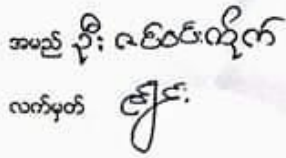 အမည် ဦး ဇင်ဝင်းကိုက်
လက်မှတ်